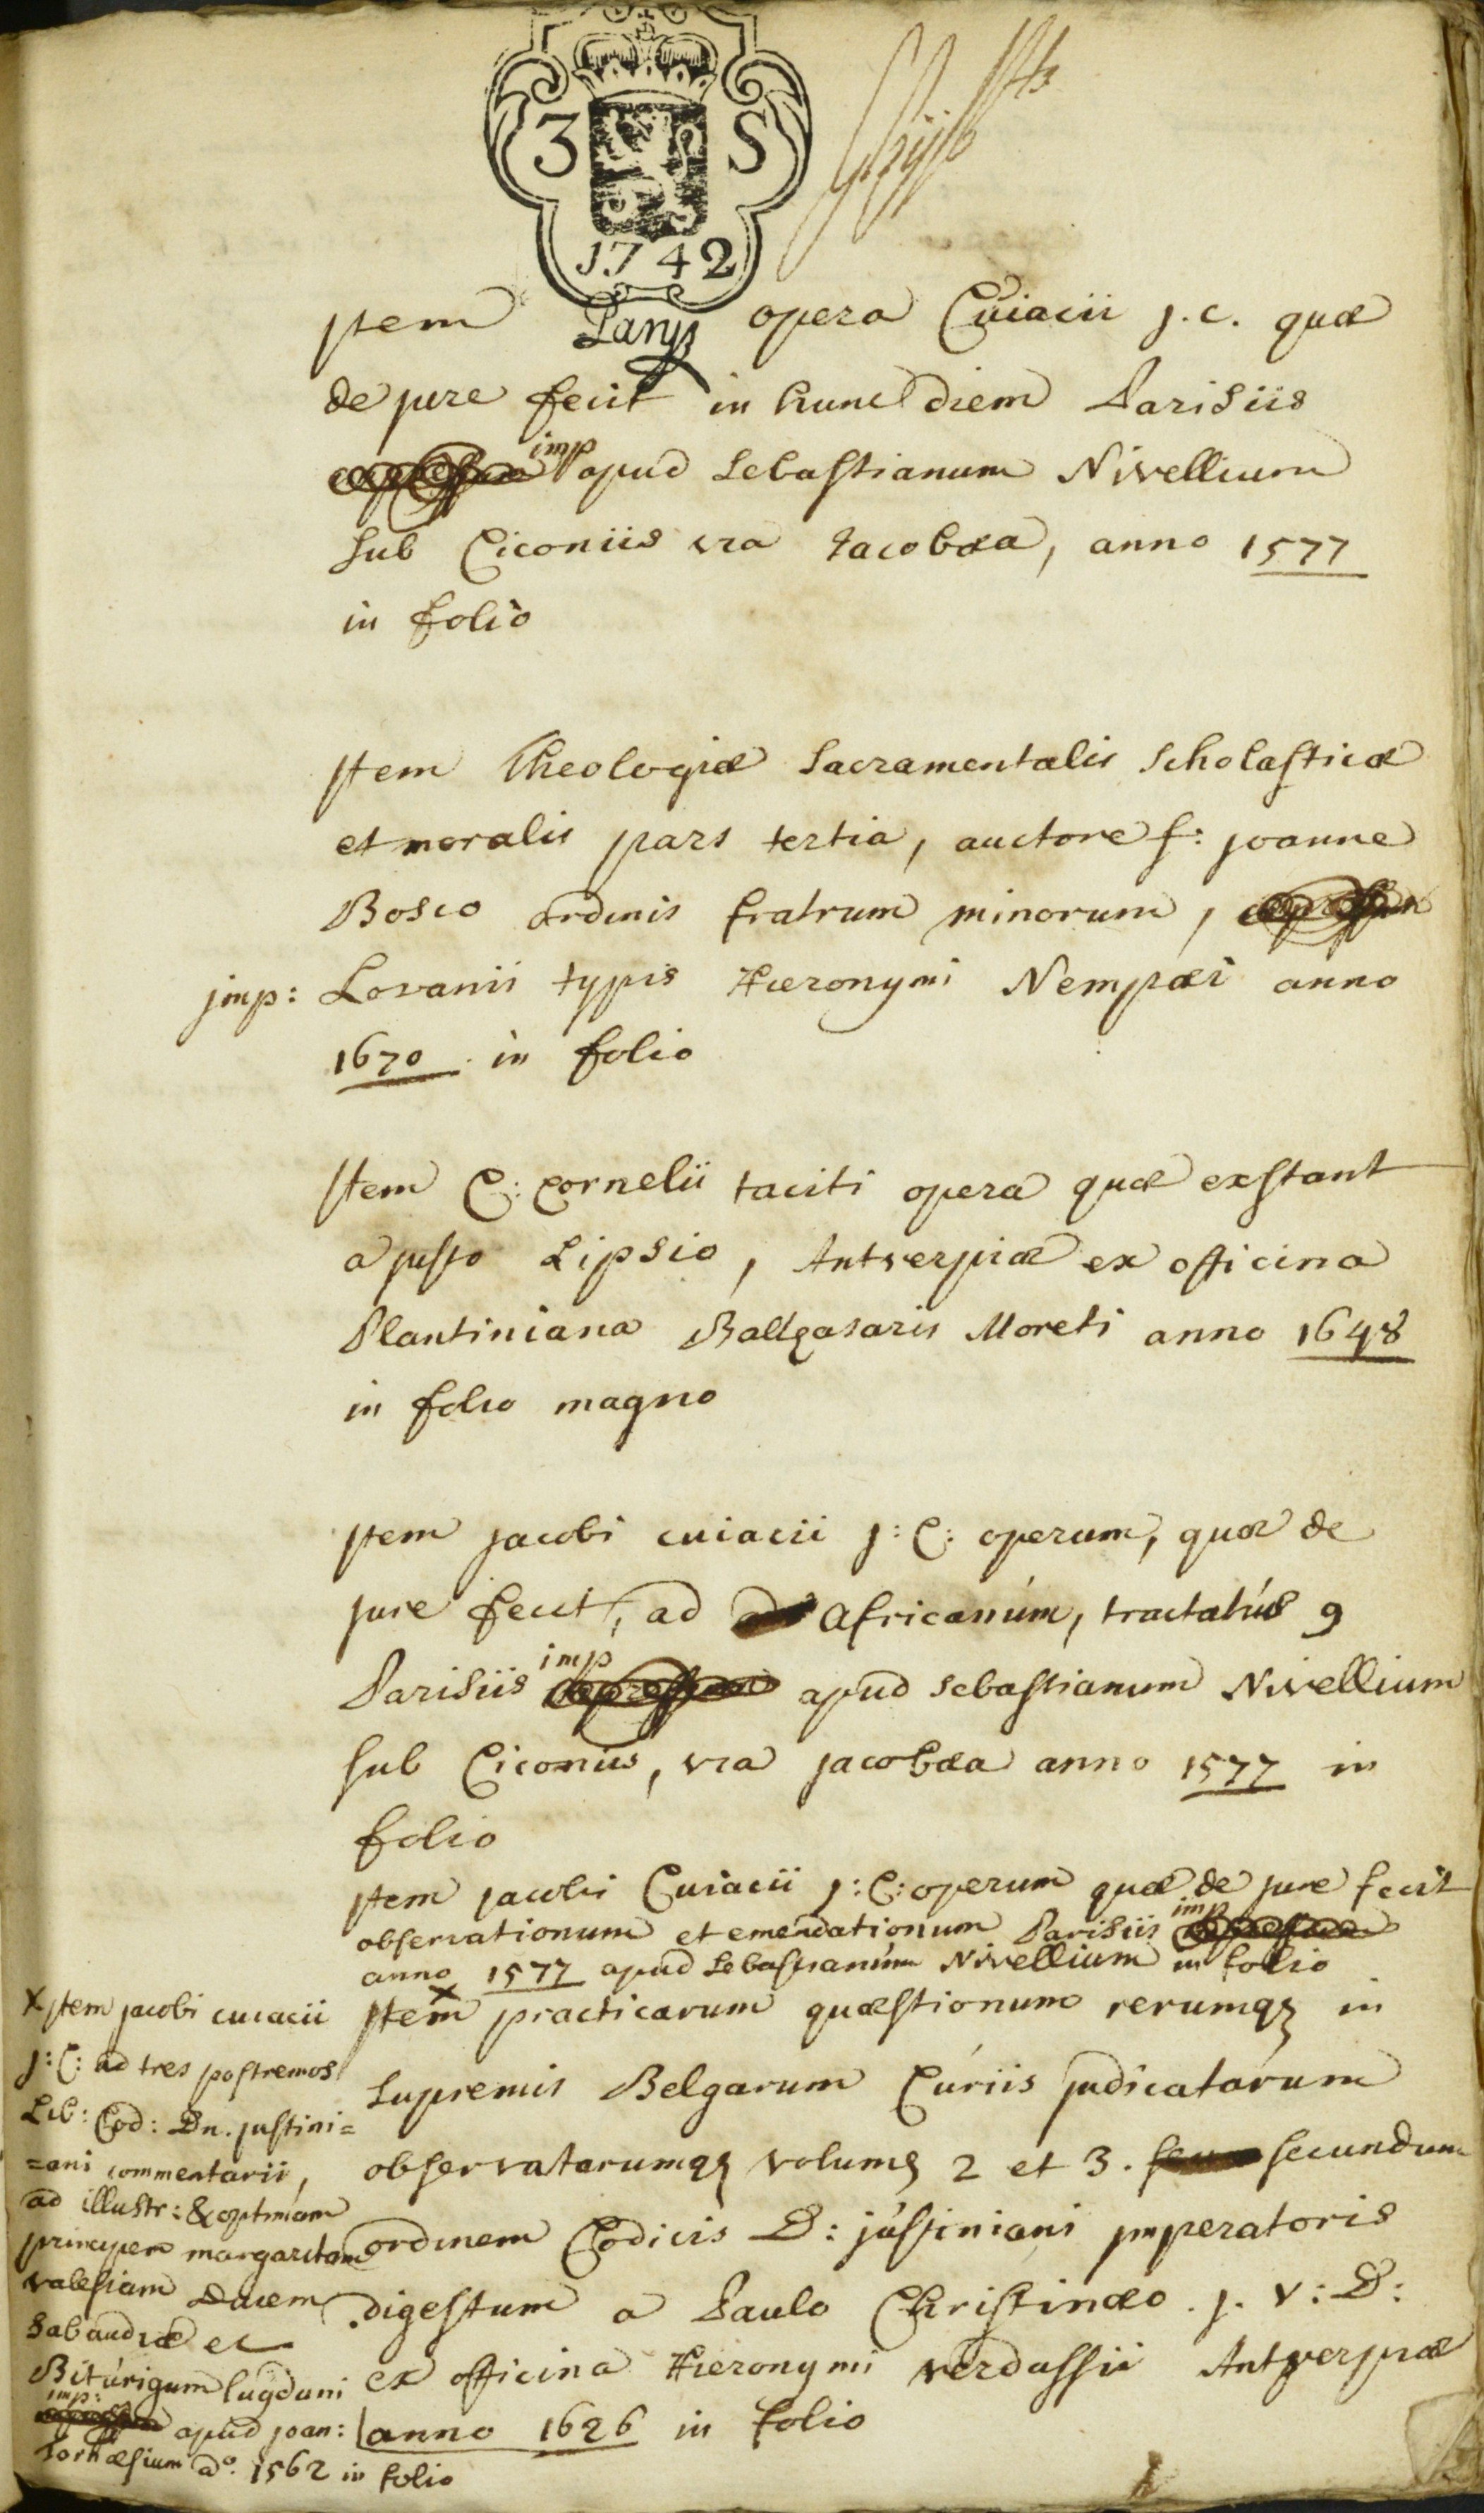 3 S
1742
jtem opera Cuiacii j.c. quæ
de jure fecit in hunc diem Parisiis
imp apud Sebastianum Nivellium
sub Ciconiis via Jacobæa, anno 1577
in folio
jtem Theologiæ Sacramentalis Scholasticæ
et moralis pars tertia, auctore f: joanne
Bosco ordinis fratrum minorum,
jmp: Lovanii typis Hieronymi Nempæi anno
1670 in folio
jtem C: Cornelii taciti opera quæ exstant
a justo Lipsio, Antverpiæ ex officina
Plantiniana Balthasaris Moreti anno 1648
in folio magno
jtem jacobi cuiacii j: C: operum, quæ de
jure fecit, ad Africanúm, tractatús 9
Parisiis imp apud Sebastianum Nivellium
sub Ciconiis, via jacobæa anno 1577 in
folio
jtem jacobi Cuiacii j: C: operum quæ de jure fecit
observationum et emendationum Parisiis imp
anno 1577 apud Sebastianúm Nivellium in folio
x
jtem practicarum quæstionum rerumqz in
Supremis Belgarum Cúriis judicatarum
observatarumqz volumz 2 et 3. secundum
ordinem Codicis D: jústiniani jmperatoris
digestum a Paulo Christinæo. j. V: D:
ex officina Hieronymi verdussii Antverpiæ
anno 1626 in folio
x jtem jacobi cuiacii
j: C: ad tres postremos
Lib: Cod: Dn. justini=
=ani commentarii,
ad illustr: & optimam
principem margaritam
valesiam Ducem
Sabaudiæ et
Bitúrigum lugduni
imp: apud joan:
Tornæsium aº. 1562 in folio